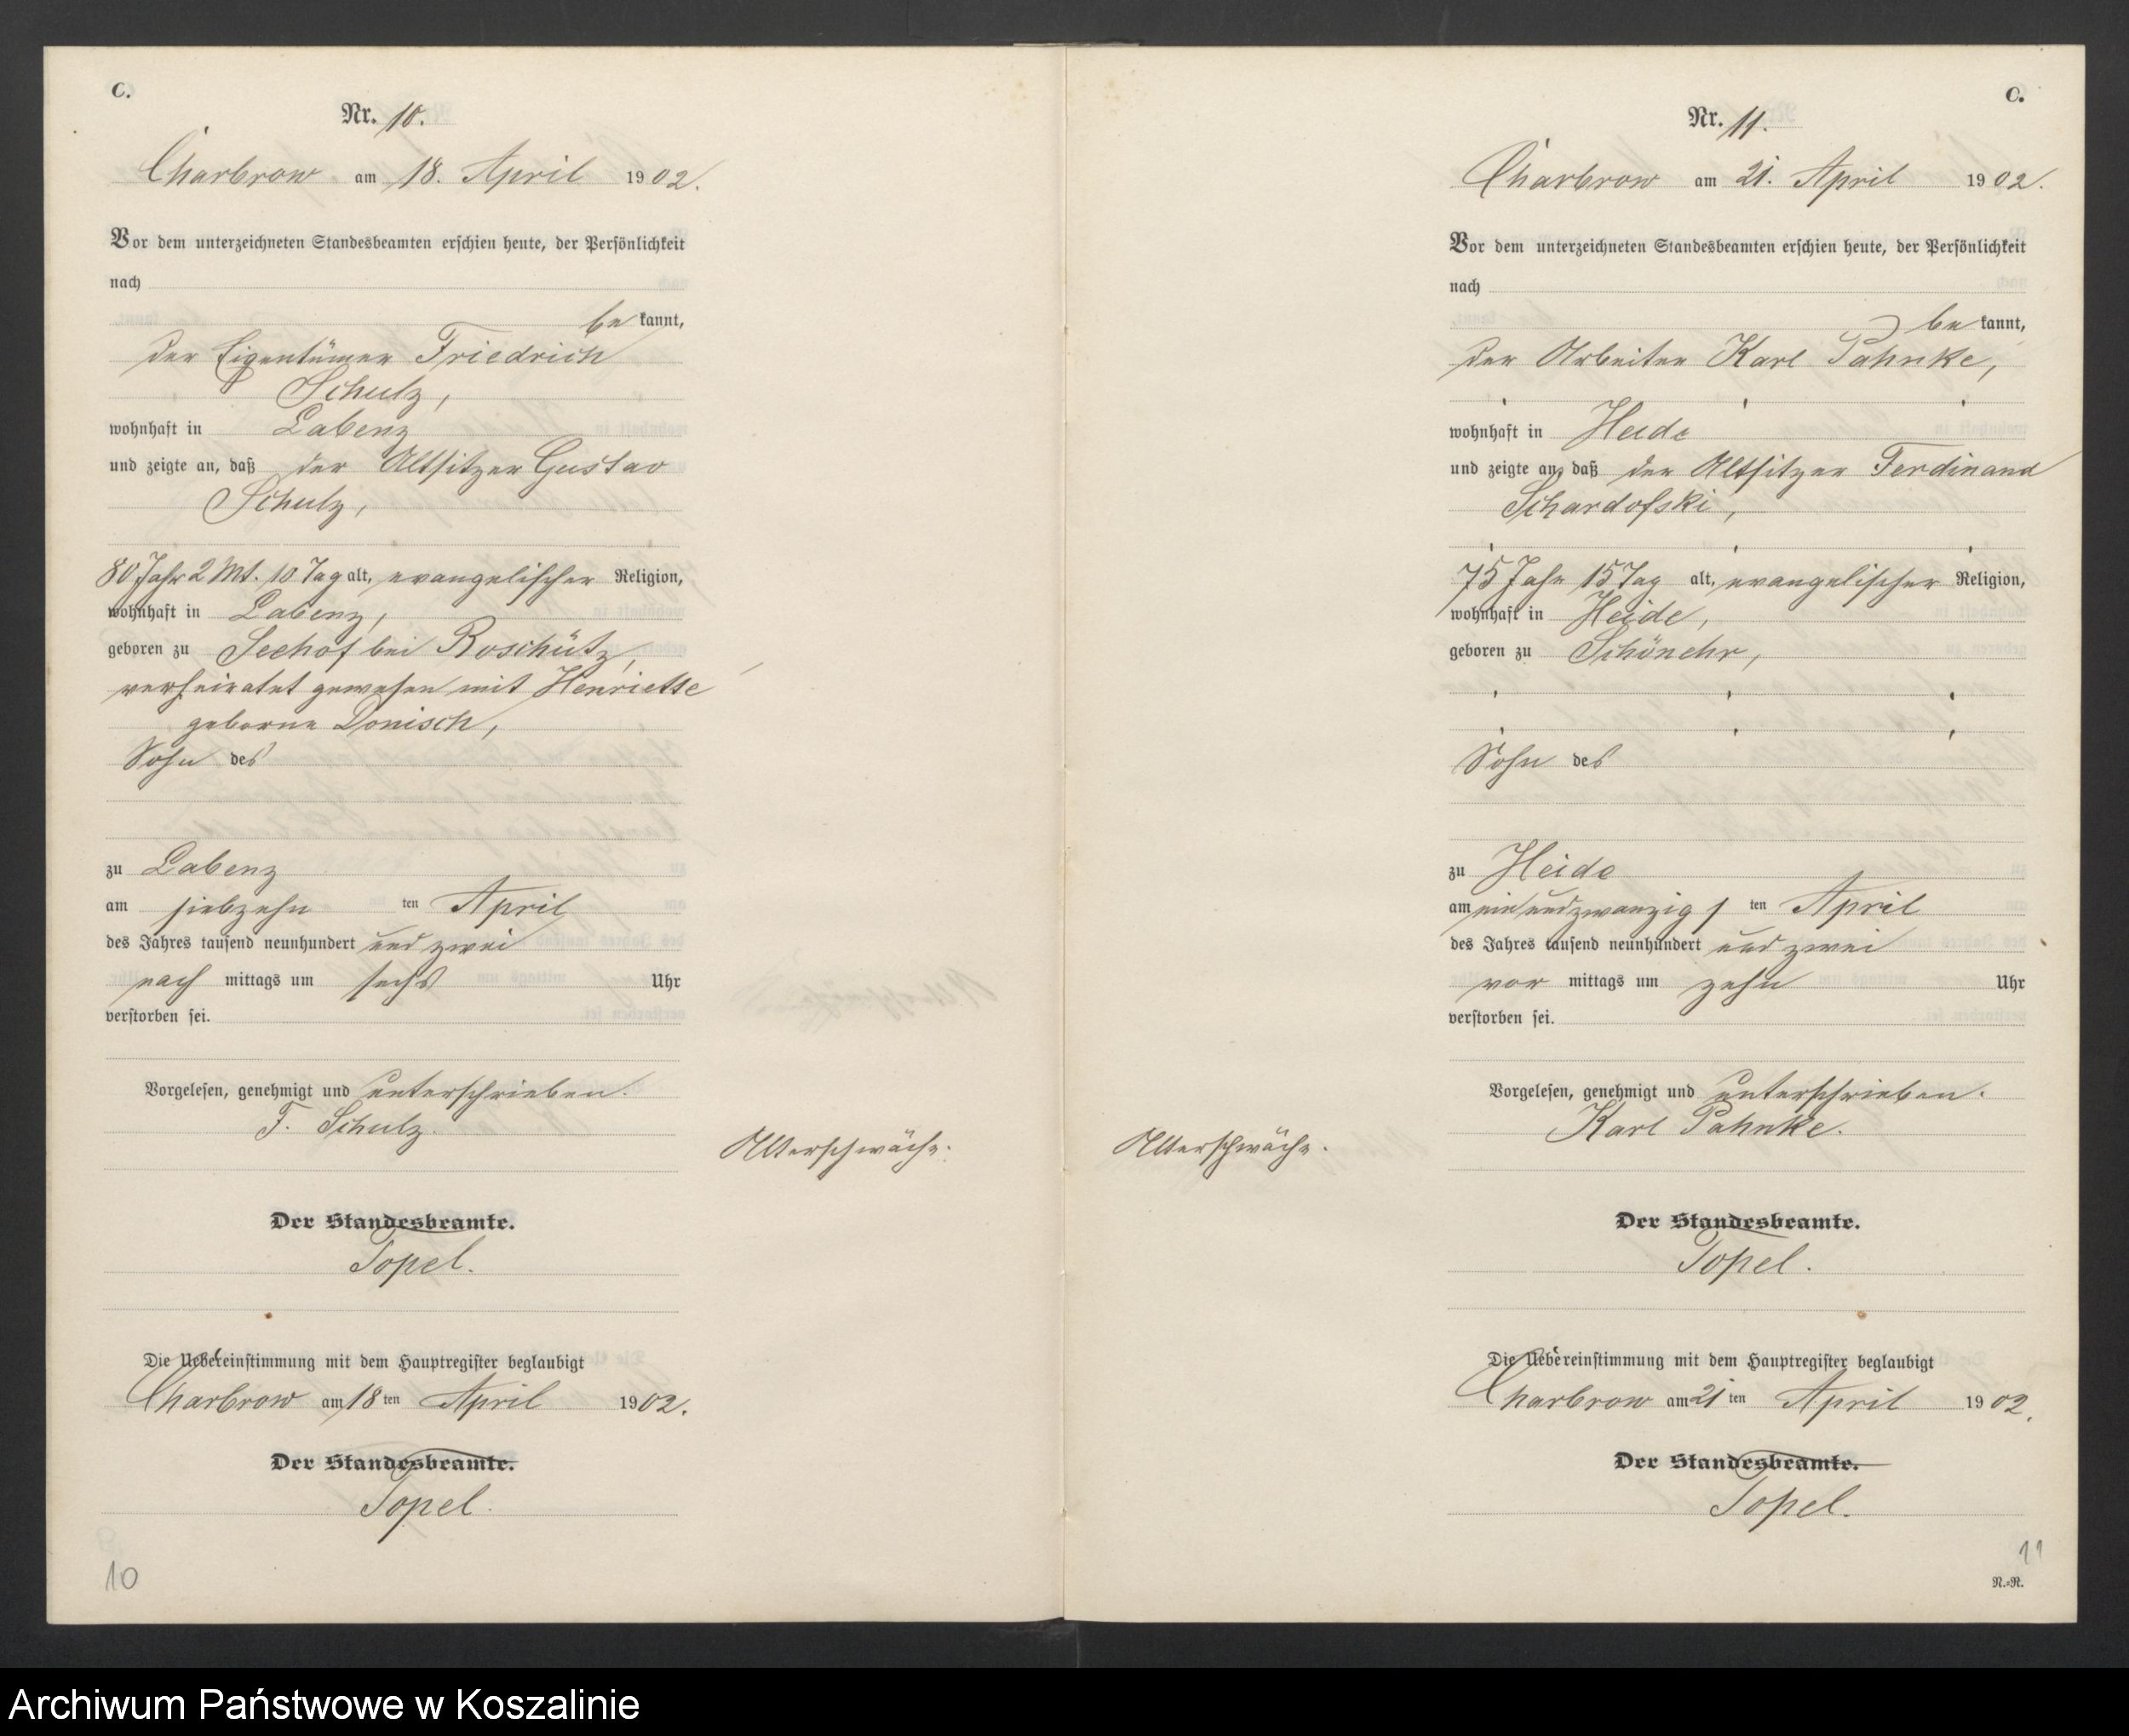 C.
Nr. 10.
Charbrow am 18. April 1902.
Vor dem unterzeichneten Standesbeamten erschien heute, der Persönlichkeit
nach
bekannt,
der Eigentümer Friedrich
Schulz,
wohnhaft in Labenz
und zeigte an, daß der Altsitzer Gustav
Schulz,
80 Jahr 2 Mt. 10 Tag alt, evangelischer Religion,
wohnhaft in Labenz,
geboren zu Seehof bei Roschütz,
verheiratet gewesen mit Henriette
geborne Donisch,
Sohn des
zu Labenz
am siebzehn ten April
des Jahres tausend neunhundert und zwei
nach mittags um sechs Uhr
verstorben sei.
Vorgelesen, genehmigt und unterschrieben.
F. Schulz.
Alterschwäche.
Der Standesbeamte.
Topel.
Die Uebereinstimmung mit dem Hauptregister beglaubigt
Charbrow am 18ten April 1902.
Der Standesbeamte.
Topel.
10
C.
Nr. 11.
Charbrow am 21. April 1902.
Vor dem unterzeichneten Standesbeamten erschien heute, der Persönlichkeit
nach
bekannt,
der Arbeiter Karl Pahnke,
wohnhaft in Heide
und zeigte an, daß der Altsitzer Ferdinand
Schardofski,
75 Jahr 15 Tag alt, evangelischer Religion,
wohnhaft in Heide,
geboren zu Schönehr,
Sohn des
zu Heide
am einundzwanzigsten April
des Jahres tausend neunhundert und zwei
vor mittags um zehn Uhr
verstorben sei.
Vorgelesen, genehmigt und unterschrieben.
Karl Pahnke.
Alterschwäche.
Der Standesbeamte.
Topel.
Die Uebereinstimmung mit dem Hauptregister beglaubigt
Charbrow am 21ten April 1902.
Der Standesbeamte.
Topel.
11
N.=R.
Archiwum Państwowe w Koszalinie